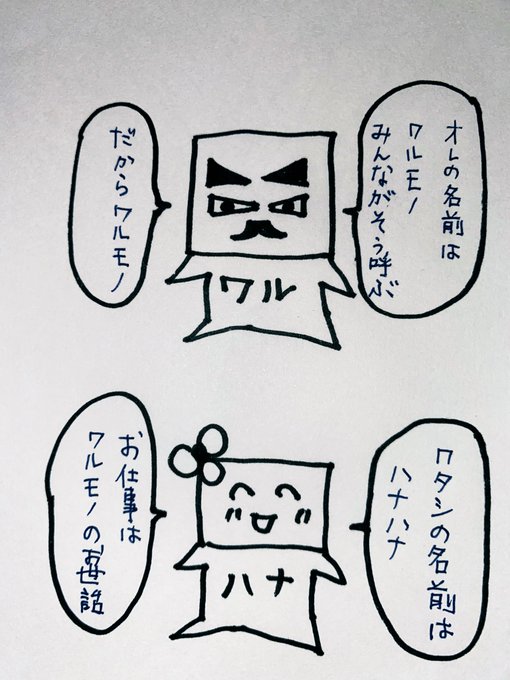 オレの名前は
ワルモノ
みんながそう呼ぶ
だからワルモノ
ワル
ワタシの名前は
ハナハナ
お仕事は
ワルモノのお世話
ハナ